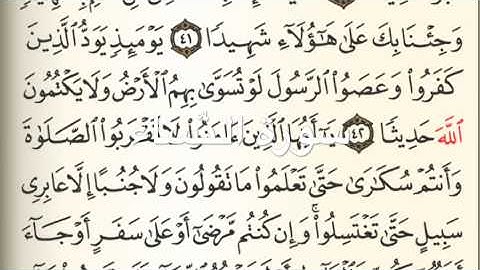 وَجِئْنَا بِكَ عَلَىٰ هَٰٓؤُلَآءِ شَهِيدًا ٤١ يَوْمَئِذٍ يَوَدُّ ٱلَّذِينَ
كَفَرُوا۟ وَعَصَوُا۟ ٱلرَّسُولَ لَوْ تُسَوَّىٰ بِهِمُ ٱلْأَرْضُ وَلَا يَكْتُمُونَ
ٱللَّهَ حَدِيثًا ٤٢ يَٰٓأَيُّهَا ٱلَّذِينَ ءَامَنُوا۟ لَا تَقْرَبُوا۟ ٱلصَّلَوٰةَ
سورة النساء
وَأَنتُمْ سُكَٰرَىٰ حَتَّىٰ تَعْلَمُوا۟ مَا تَقُولُونَ وَلَا جُنُبًا إِلَّا عَابِرِى
سَبِيلٍ حَتَّىٰ تَغْتَسِلُوا۟ ۚ وَإِن كُنتُم مَّرْضَىٰٓ أَوْ عَلَىٰ سَفَرٍ أَوْ جَآءَ